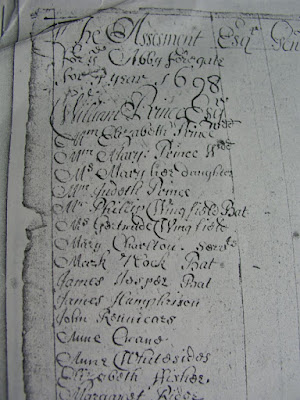 The Assesment Esqrs Gen
for ye Abby foregate
for ye year 1698
William Prince Esqr
Mrs Elizabeth Prince
Mrs Mary Prince Wid
Ms Mary her daughter
Mrs Judeth Prince
Mr Phillip Wingfield Bat
Ms Gertrude Wingfield
Mary Charlton Servts
Mark Bat
James Bat
James Humphrison
John Rennicars
Anne
Anne Whitesides
Elizabeth
Margaret Rider